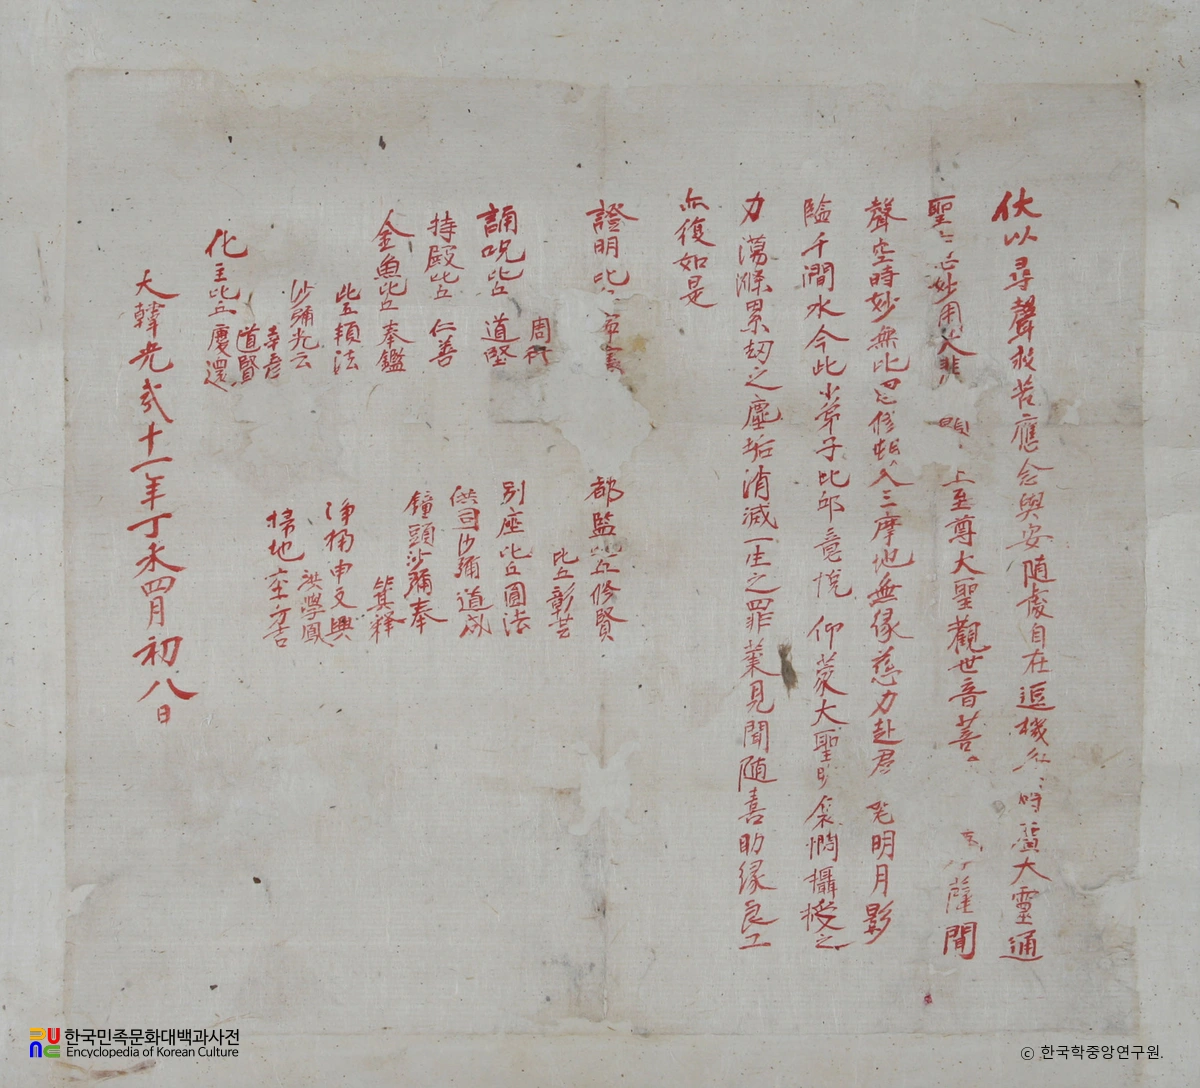 伏以尋聲救苦應念與安随處自在逗機 時 大靈通
聖 妙用大悲 上至尊大聖觀世音菩 薩聞
聲空時妙無比思修 入三摩地無緣慈力赴 明月影
臨千澗水今此小弟子比邱 悅仰蒙大聖 哀憫攝授之
力蕩滌累劫之塵垢消滅一生之罪業見聞随喜助緣良工
亦復如是
證明比
誦呪比丘 道堅
周行
持殿比丘 仁善
金魚比丘 奉鑑
比丘 頓法
沙彌 光云
幸彦
道賢
化主比丘 慶還
都監比丘修賢
比丘彰芸
別座比丘圓法
供司沙彌道成
鐘頭沙彌奉
箕釋
淨桶申文興
洪學鳳
掃地 方吉
大韓光武十一年丁未四月初八日
한국민족문화대백과사전
Encyclopedia of Korean Culture
ⓒ 한국학중앙연구원.